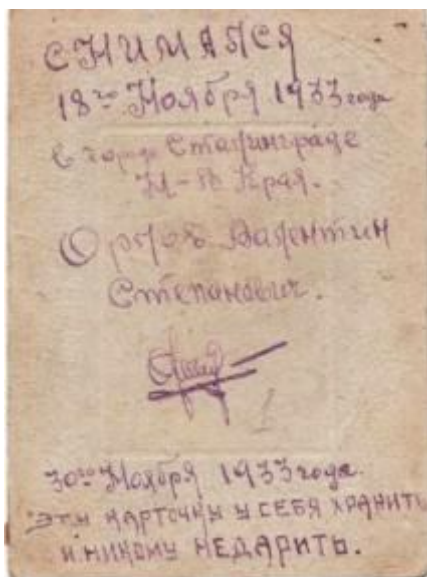 СНИМАЛСЯ
18го Ноября 1933 года
в городе Сталинграде
Н-В Края.
Орлов Валентин
Степанович.
1
30го Ноября 1933 года.
ЭТУ КАРТОЧКУ У СЕБЯ ХРАНИТЬ
И НИКОМУ НЕДАРИТЬ.